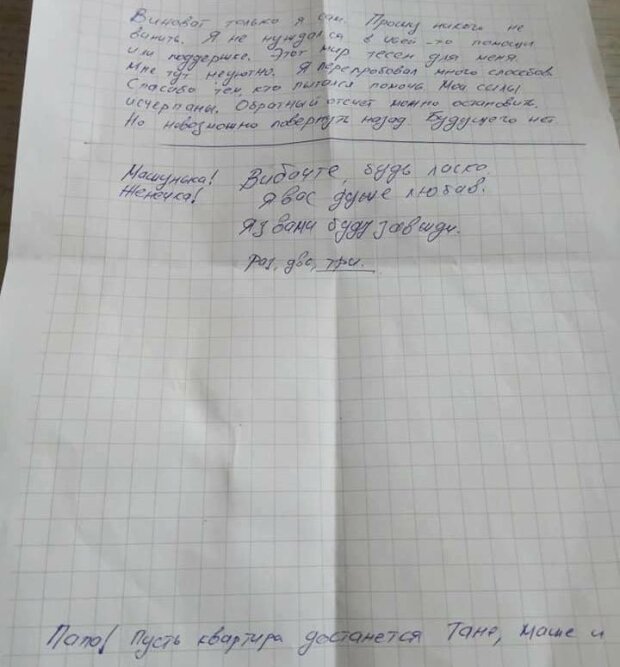 Виноват только я сам. Прошу никого не
винить. Я не нуждался в чьей-то помощи
или поддержке. Этот мир тесен для меня.
Мне тут неуютно. Я перепробовал много способов.
Спасибо тем, кто пытался помочь. Мои силы
исчерпаны. Обратный отсчёт можно остановить.
Но невозможно повернуть назад. Будущего нет.
Машунька! Вибачте, будь ласка.
Женечка! Я вас дуже любив.
Я з вами буду завжди.
Раз, два, три.
Папа! Пусть квартира достанется Тане, Маше и